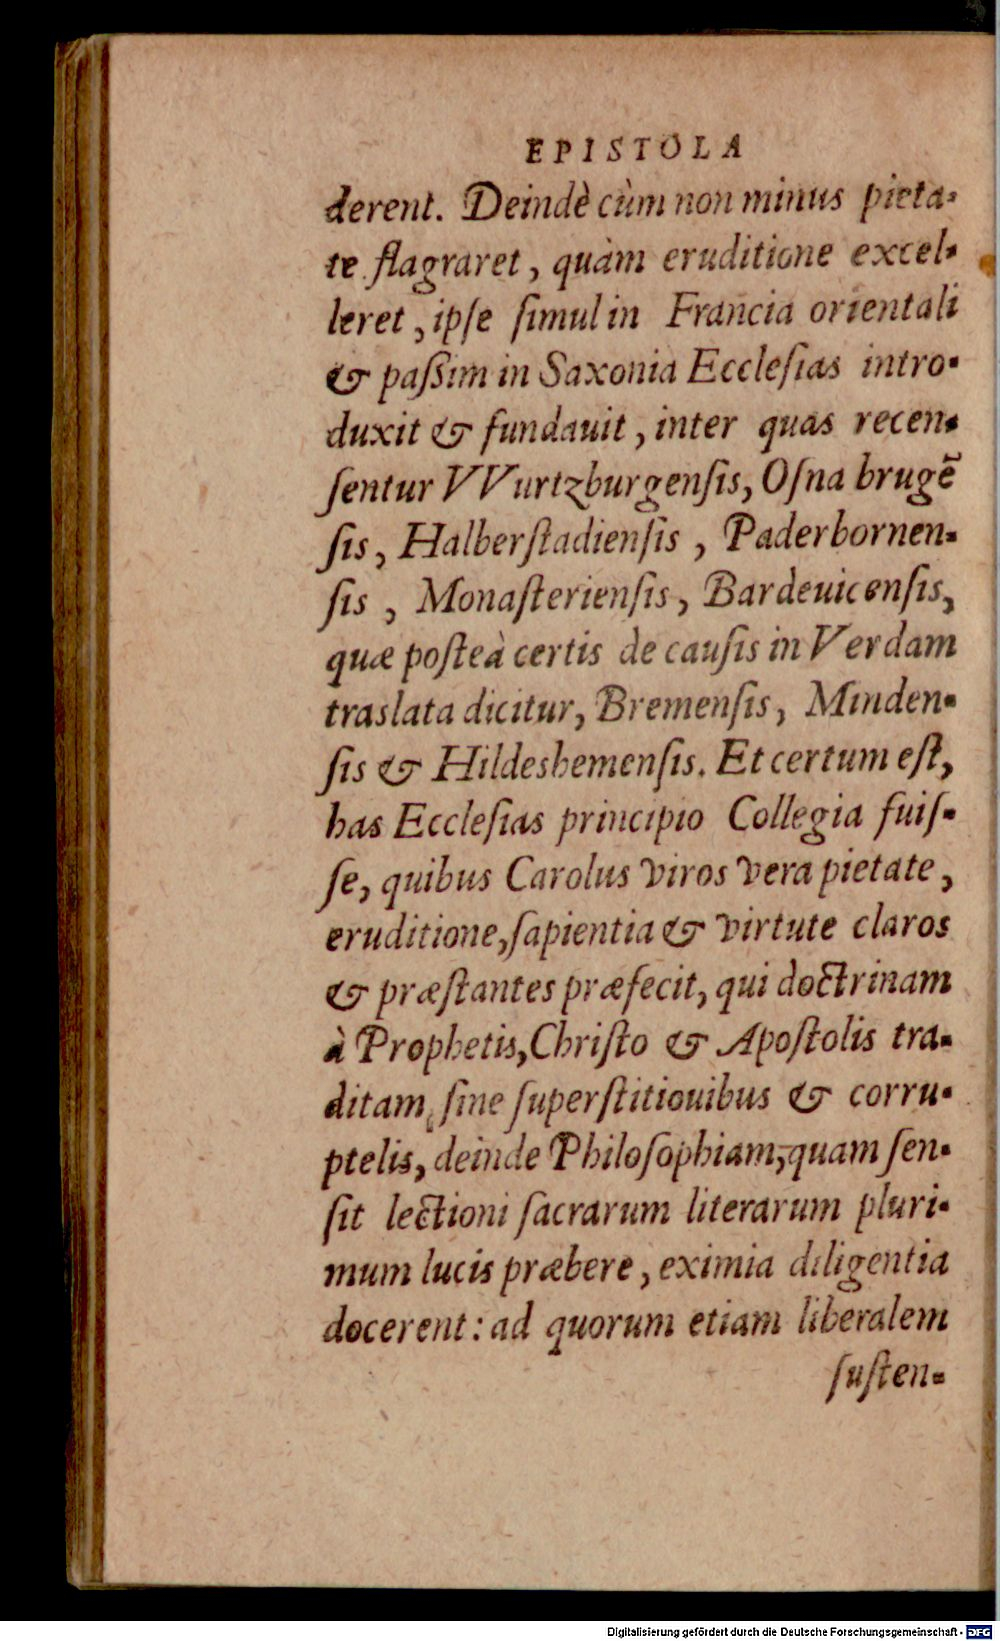 EPISTOLA
derent. Deindè cùm non minus pieta-
te flagraret, quàm eruditione excel-
leret, ipſe ſimul in Francia orientali
& paßim in Saxonia Eccleſias intro-
duxit & fundauit, inter quas recen-
ſentur VVurtzburgenſis, Oſna brugẽ
ſis, Halberſtadienſis, Paderbornen-
ſis, Monaſterienſis, Bardeuicenſis,
quæ poſteà certis de cauſis in Verdam
traslata dicitur, Bremenſis, Minden-
ſis & Hildeshemenſis. Et certum eſt,
has Eccleſias principio Collegia fuiſ-
ſe, quibus Carolus viros vera pietate,
eruditione, ſapientia & virtute claros
& præſtantes præfecit, qui doctrinam
à Prophetis, Chriſto & Apoſtolis tra-
ditam, ſine ſuperſtitiouibus & corru-
ptelis, deinde Philoſophiam, quam ſen-
ſit lectioni ſacrarum literarum pluri-
mum lucis præbere, eximia diligentia
docerent: ad quorum etiam liberalem
ſuſten-
Digitalisierung gefördert durch die Deutsche Forschungsgemeinschaft - DFG